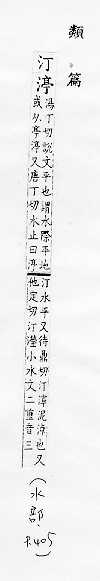 類篇
汀渟
湯丁切說文平也謂水際平地
或从亭渟又唐丁切水止曰渟
汀水平又待鼎切汀濘泥淖也又
他定切汀瀅小水文二重音三
(水部,P.405)